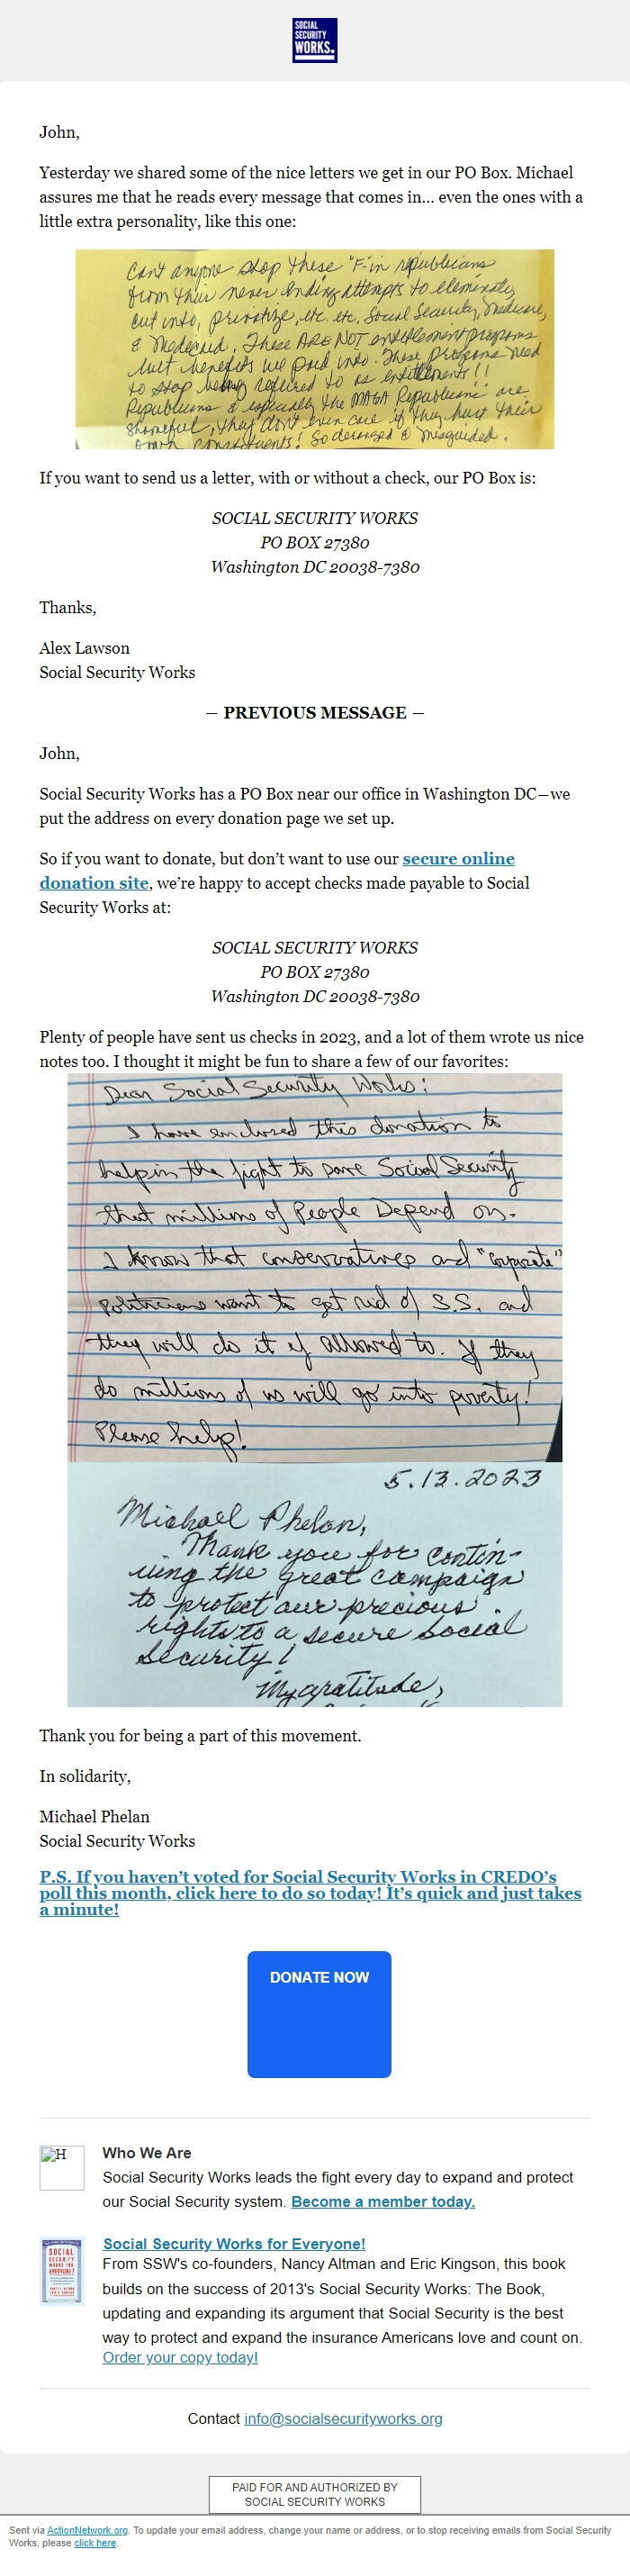 SOCIAL
SECURITY
WORKS.
John,
Yesterday we shared some of the nice letters we get in our PO Box. Michael
assures me that he reads every message that comes in... even the ones with a
little extra personality, like this one:
Can't anyone stop these "F-in republicians
from their never ending attempts to eleminate,
cut into, privatize, etc. etc. Social Security, Medicare,
& Medicaid. These ARE NOT entitlement programs
but benefits we paid into. These programs need
to stop being referred to as entitlements!!
Republicans & especially the MAGA Republicans are
shameful, they don't even care if they hurt their
own constituents! So deranged & misguided.
If you want to send us a letter, with or without a check, our PO Box is:
SOCIAL SECURITY WORKS
PO BOX 27380
Washington DC 20038-7380
Thanks,
Alex Lawson
Social Security Works
— PREVIOUS MESSAGE —
John,
Social Security Works has a PO Box near our office in Washington DC—we
put the address on every donation page we set up.
So if you want to donate, but don't want to use our secure online
donation site, we're happy to accept checks made payable to Social
Security Works at:
SOCIAL SECURITY WORKS
PO BOX 27380
Washington DC 20038-7380
Plenty of people have sent us checks in 2023, and a lot of them wrote us nice
notes too. I thought it might be fun to share a few of our favorites:
Dear Social Security Works:
I have enclosed this donation to
help in the fight to save Social Security
that millions of People Depend on.
I know that conservatives and "corporate"
Politicians want to get rid of S.S. and
they will do it if allowed to. If they
do millions of us will go into poverty!
Please help!
5.13.2023
Michael Phelan,
Thank you for contin-
uing the great campaign
to protect our precious
rights to a secure social
security!
My gratitude,
Thank you for being a part of this movement.
In solidarity,
Michael Phelan
Social Security Works
P.S. If you haven't voted for Social Security Works in CREDO's
poll this month, click here to do so today! It's quick and just takes
a minute!
DONATE NOW
H
Who We Are
Social Security Works leads the fight every day to expand and protect
our Social Security system. Become a member today.
SOCIAL
SECURITY
WORKS FOR
EVERYONE!
Social Security Works for Everyone!
From SSW's co-founders, Nancy Altman and Eric Kingson, this book
builds on the success of 2013's Social Security Works: The Book,
updating and expanding its argument that Social Security is the best
way to protect and expand the insurance Americans love and count on.
Order your copy today!
Contact info@socialsecurityworks.org
PAID FOR AND AUTHORIZED BY
SOCIAL SECURITY WORKS
Sent via ActionNetwork.org. To update your email address, change your name or address, or to stop receiving emails from Social Security
Works, please click here.